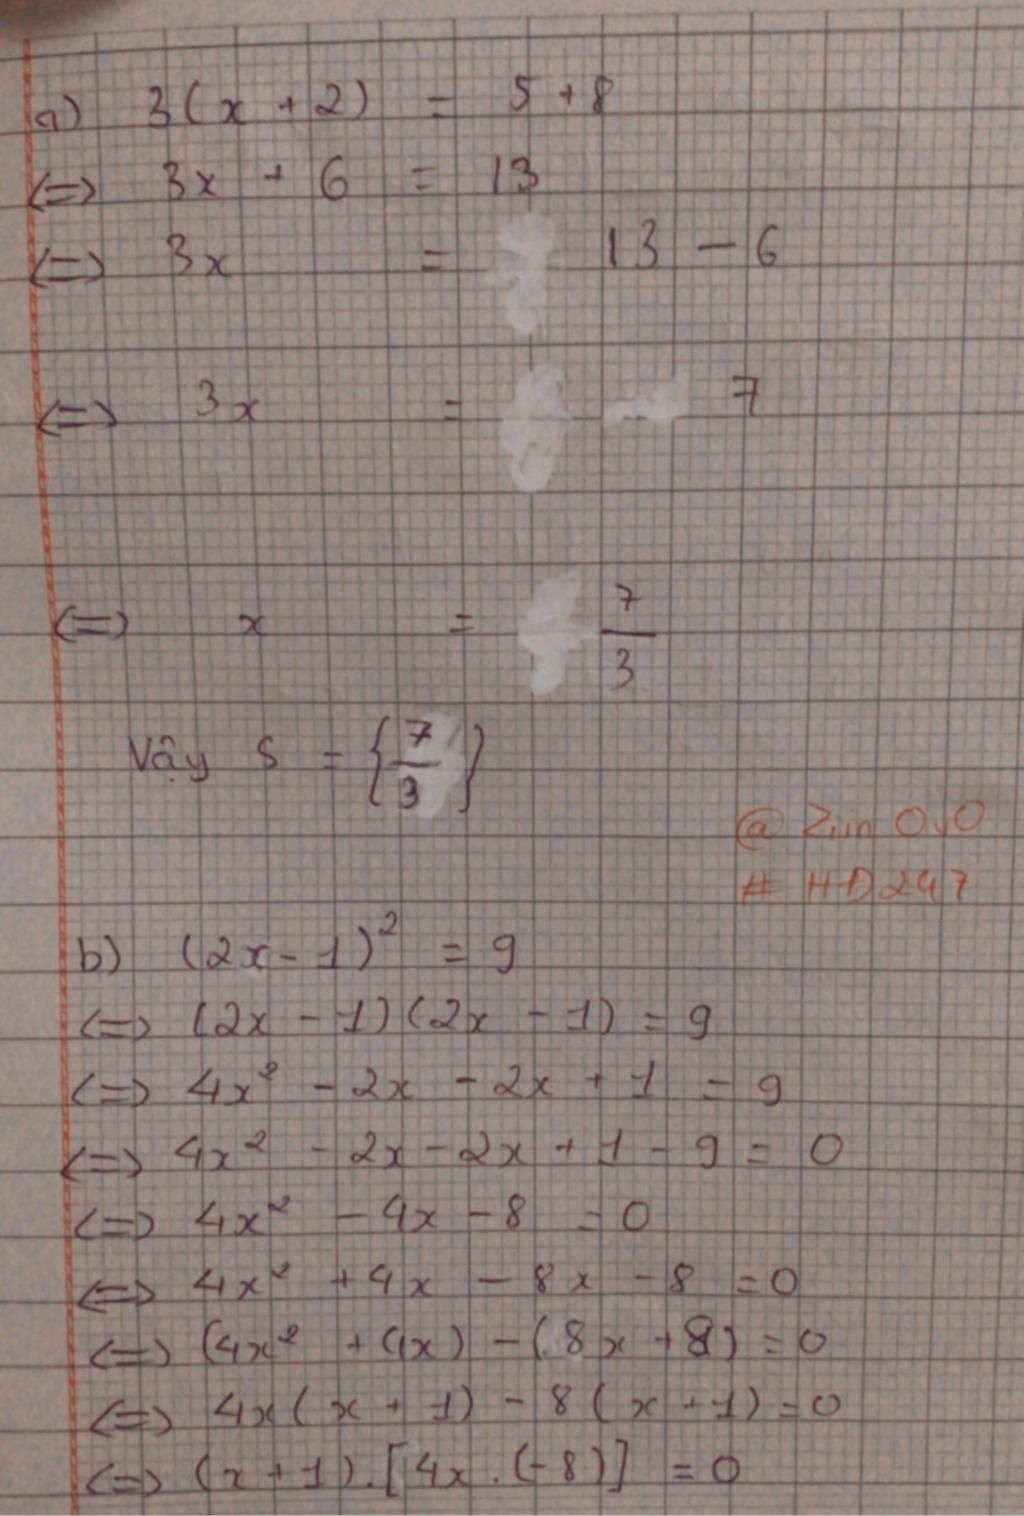 a) 3(x + 2) = 5 + 8
<=> 3x + 6 = 13
<=> 3x = 13 - 6
<=> 3x = 7
<=> x = 7/3
Vậy S = {7/3}
@ Ziin OvO
# HD247
b) (2x - 1)² = 9
<=> (2x - 1)(2x - 1) = 9
<=> 4x² - 2x - 2x + 1 = 9
<=> 4x² - 2x - 2x + 1 - 9 = 0
<=> 4x² - 4x - 8 = 0
<=> 4x² + 4x - 8x - 8 = 0
<=> (4x² + 4x) - (8x + 8) = 0
<=> 4x(x + 1) - 8(x + 1) = 0
<=> (x + 1).[4x.(-8)] = 0